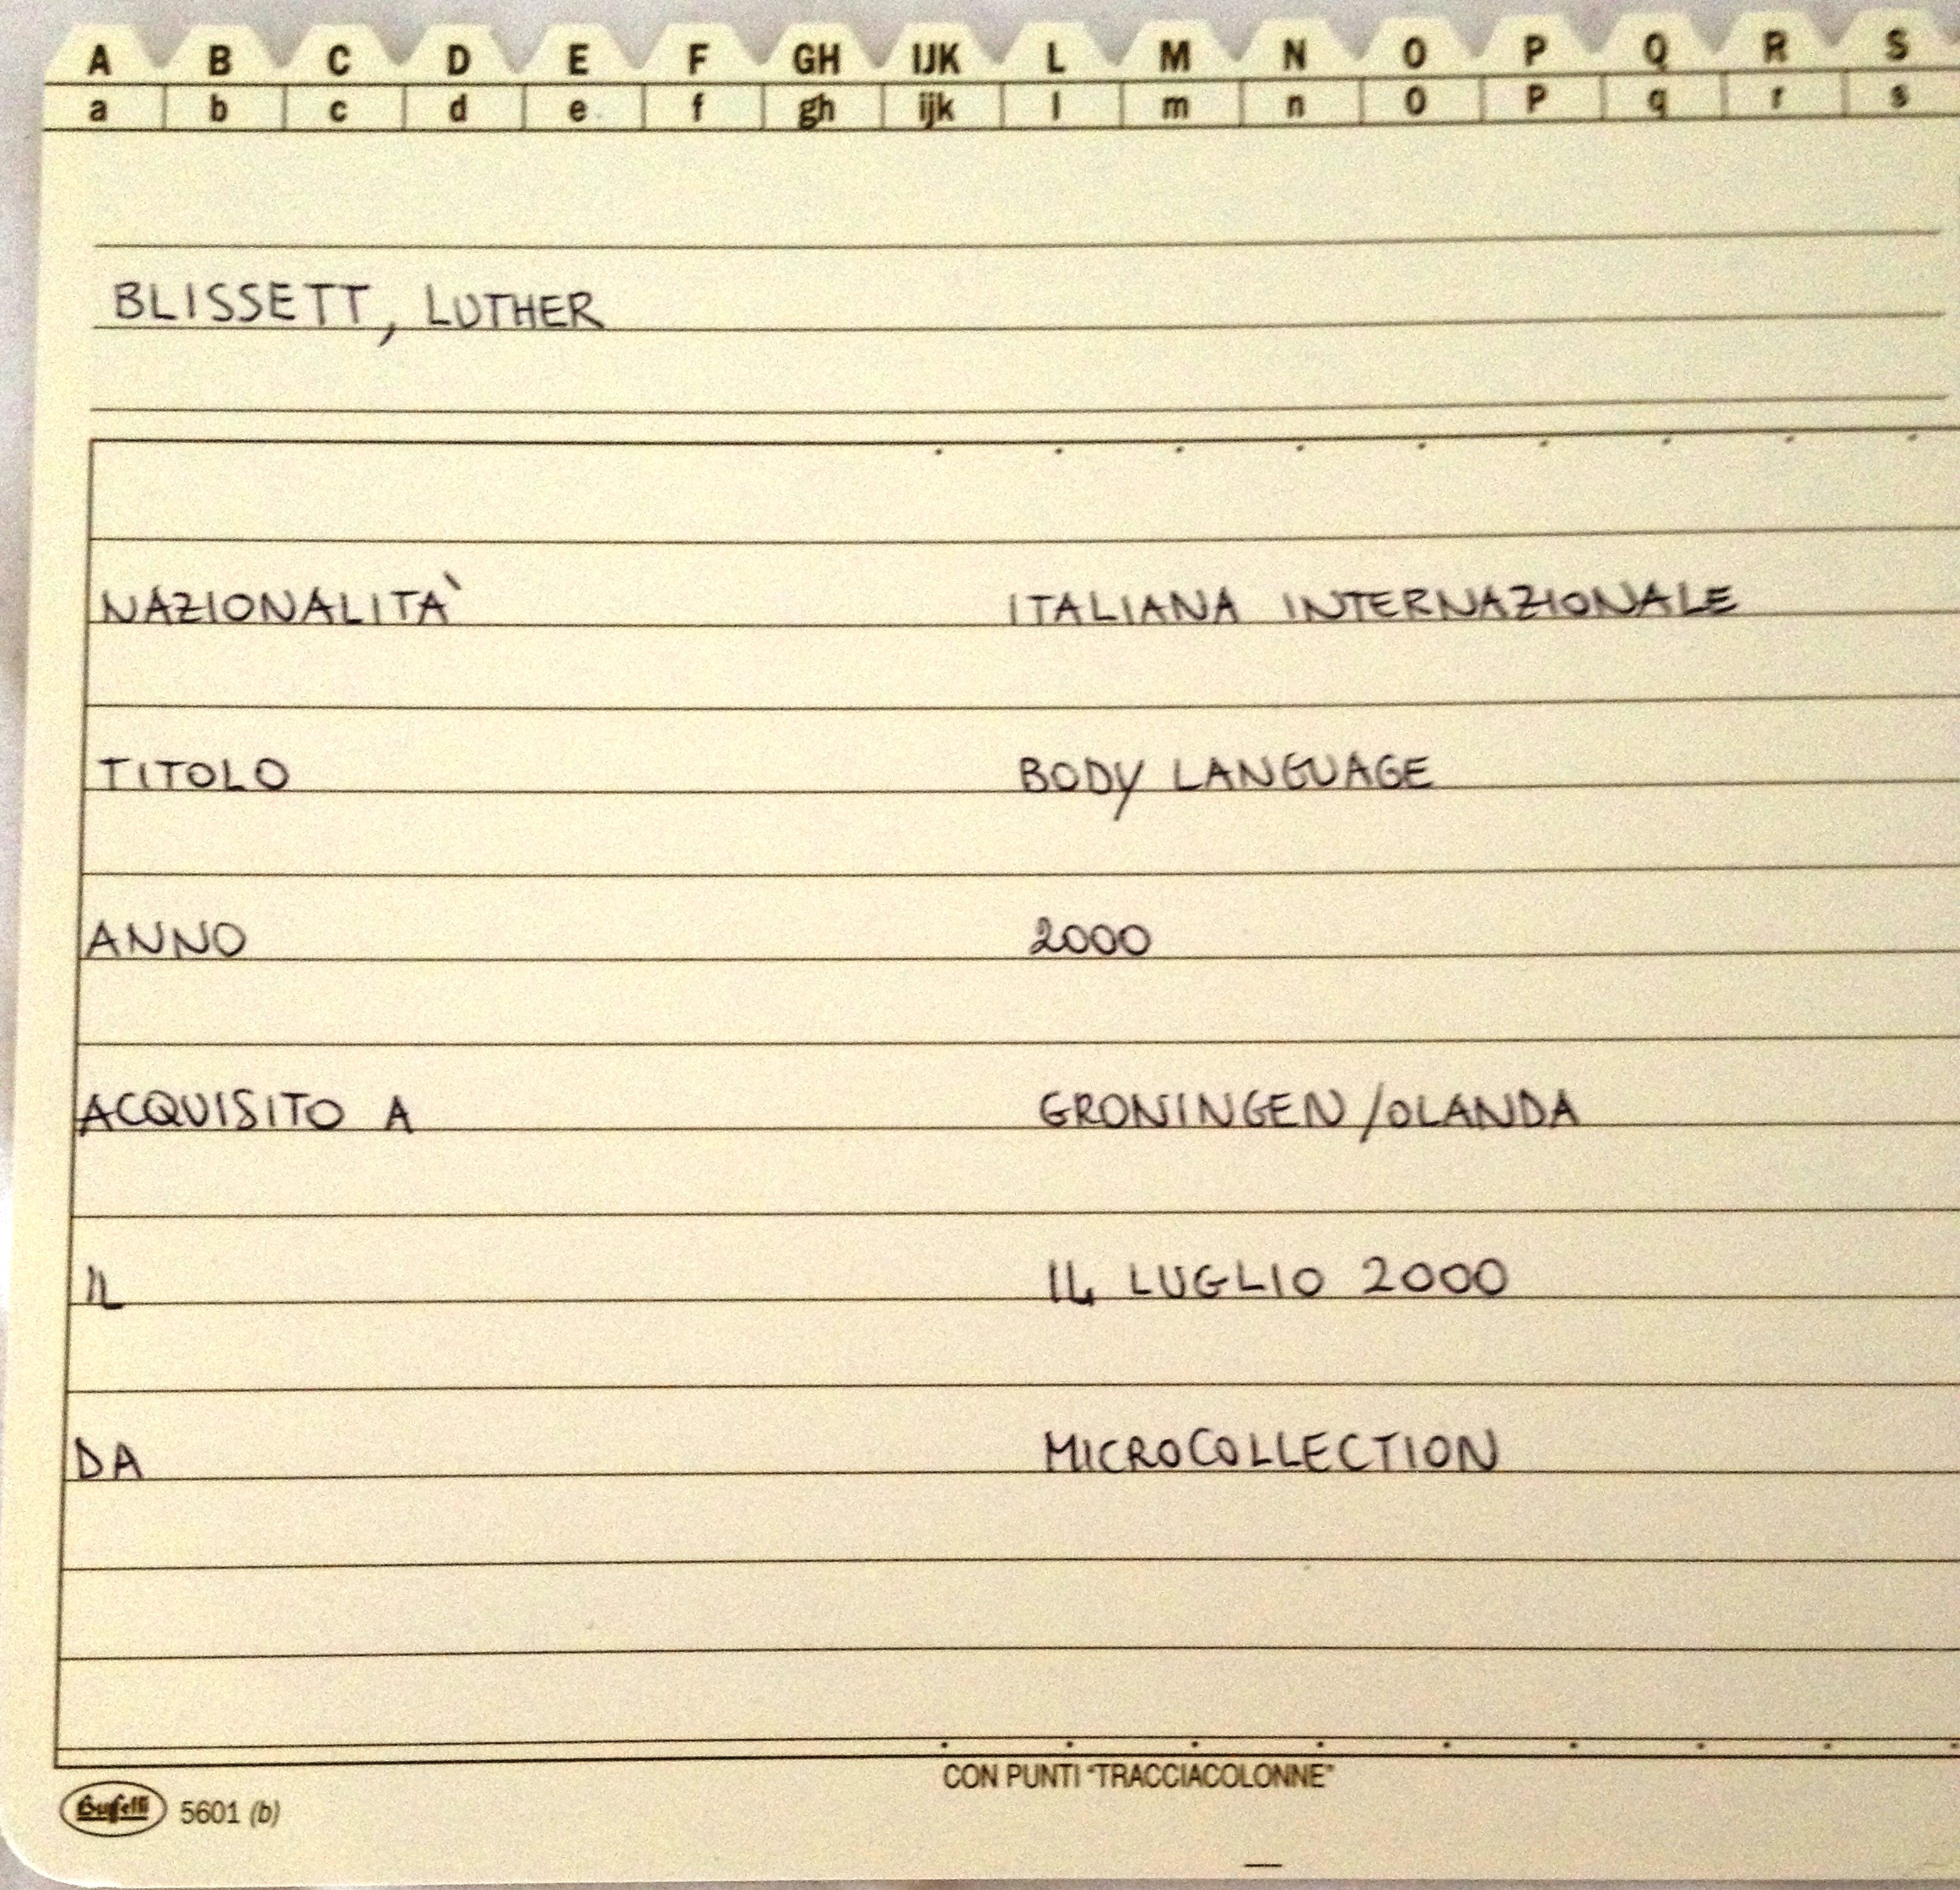 A B C D E F GH IJK L M N O P Q R S
a b c d e f gh ijk l m n o p q r s
BLISSETT, LUTHER
NAZIONALITA' ITALIANA INTERNAZIONALE
TITOLO BODY LANGUAGE
ANNO 2000
ACQUISITO A GRONINGEN/OLANDA
IL 14 LUGLIO 2000
DA MICROCOLLECTION
CON PUNTI "TRACCIACOLONNE"
Buffetti 5601 (b)